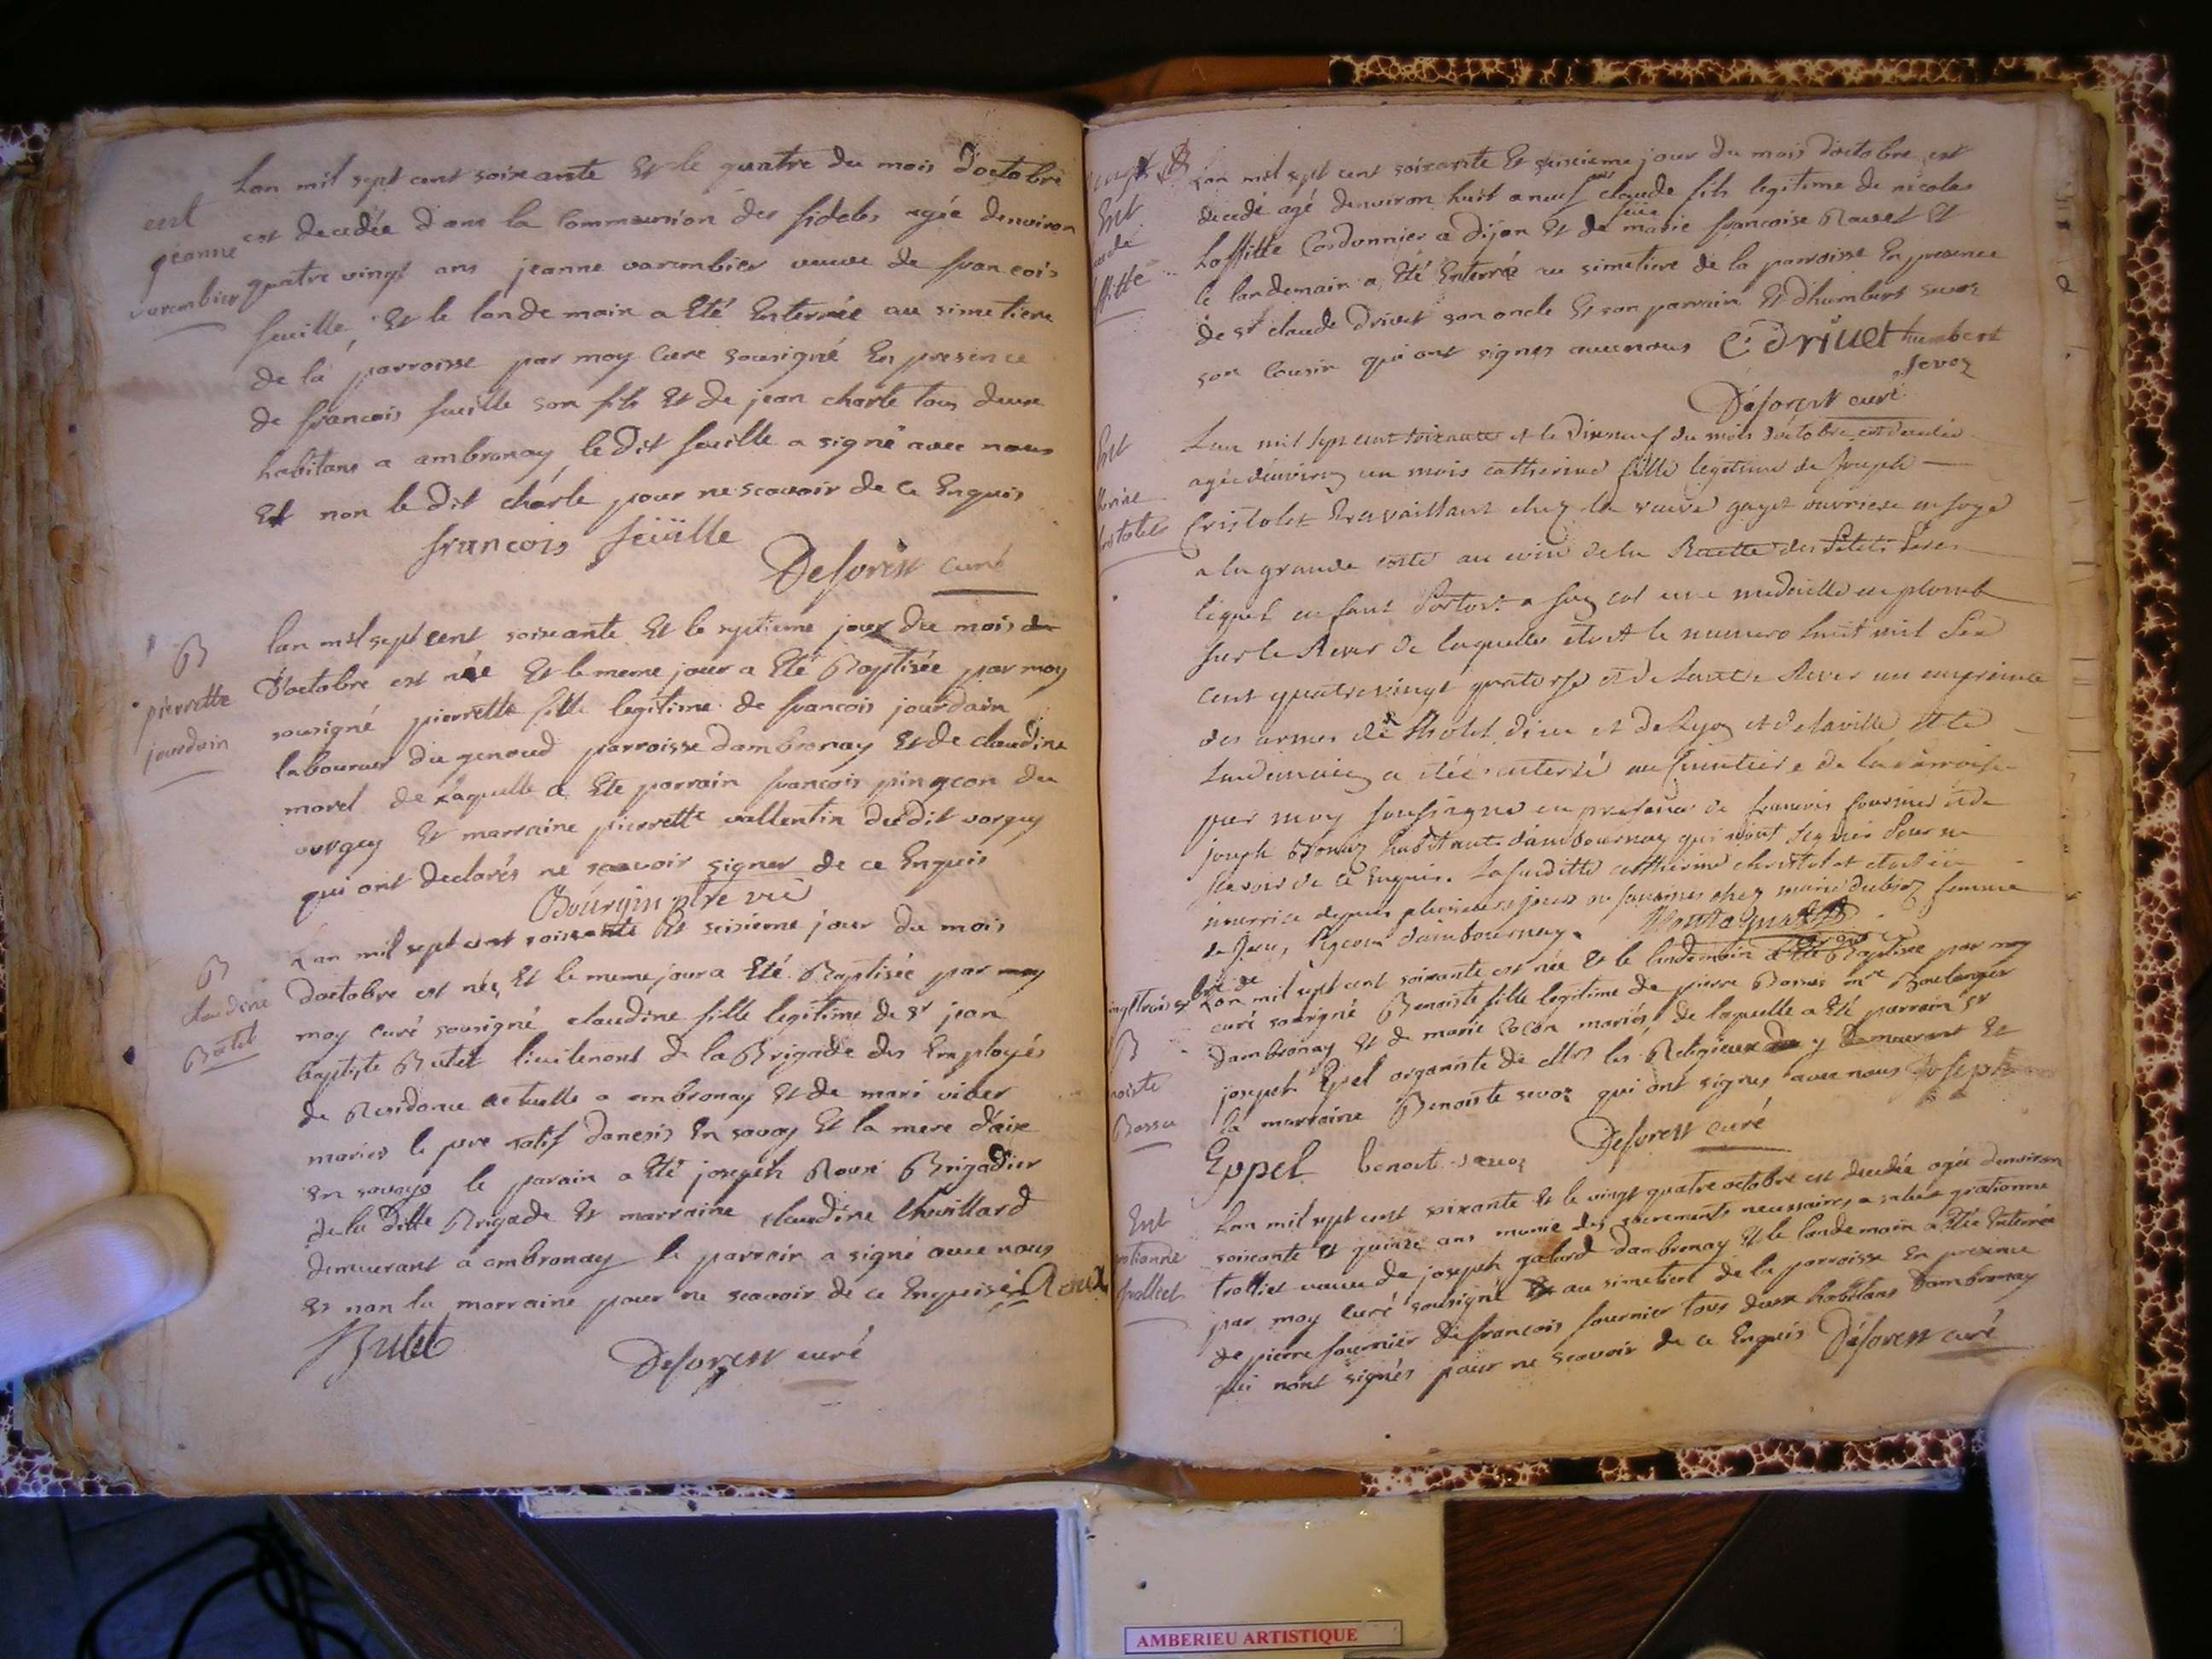 Lan mil sept cent soixante Et le quatre du mois d'octobre
est decedée dans la Communion des fideles agée denviron
quatre vingt ans jeanne varembier veuve de francois
feuille, Et le landemain a Eté Enterrée au simetiere
de la parroisse par moy Cure sousigné En presence
de francois feuille son fils Et de jean charle tous deux
habitans a ambronay le Dit feuille a signé avec nous
Et non le Dit charle pour ne scavoir de ce Enquis
francois feüille
Deforest curé
ent
jeanne
varembier
lan mil sept cent soixante Et le septieme jour du mois
d'octobre est née Et le meme jour a Eté Baptisée par moy
sousigné pierrette fille legitime de francois jourdain
laboureur du genoud parroisse dambronay Et de claudine
morel de Laquelle a Ete parrain francois pingeon du
vorgey Et marraine pierrette vallentin dudit vorgey
qui ont declarés ne scavoir signer de ce Enquis
Bourgin ptre vic
B
pierrette
jourdain
Lan mil sept cent soixante Et seisieme jour du mois
doctobre est née, Et le meme jour a Eté Baptisée par moy
moy curé sousigné claudine fille legitime de sr jean
baptiste Butet lieutenant de la Brigade des Employés
de Residance actuelle a ambronay Et de mari viber
mariés le pere natif danesis En savoy Et la mere d'aix
En savoye le parain a Eté joseph Roux Brigadier
de la Ditte Brigade Et marraine claudine Chevillard
demeurant a ambronay le parrain a signé avec nous
Et non la marraine pour ne scavoir de ce Enquise Roux
Butet
Deforest curé
B
claudine
Butet
Lan mil sept cent soixante Et seisieme jour du mois d'octobre est
decedé agé denviron huit a neuf ans claude fils legitime de nicolas
Laffitte Cordonnier a Dijon Et de feue marie francoise Ravet Et
le landemain a Eté Enterré au simetiere de la parroisse En presence
de sr claude Drivet son oncle Et son parrain Et d'humbert sevoz
son Cousin qui ont signes avec nous C Drivet humbert
sevoz
Deforest curé
Ent
Lan mil sept cent soixante et le dixneuf du mois doctobre est decedée
agée denviron un mois catherine fille legitime de Joseph
Cristolet travaillant chez la veuve gayet ouvriere en soye
a la grande coste au coin de la Ruette des Petits Peres
lequel enfant Portoit a son col une medaille en plomb
sur le Revers de laquelle étoit le numero huit mil six
cent quatre vingt quatorse et de Lautre Revers un empreinte
des armes de L'hotel dieu et de Lyon et de la ville et le
Landemain a étée enterré au Cimetiere de la Parroisse
par moy soussigné en presence de francois fournier et de
joseph Bonaz habitants d'ambournay qui n'ont signés Pour ne
scavoir de ce enquis. La susditte catherine christolet etoit en
nourrice depuis plusieurs jours ou semaines chez marie dubiez femme
de Jean Pigeon d'ambournay.
Ent
Lan mil sept cent soixante est née Et le landemain a Eté Baptisée par moy
curé sousigné Benoiste fille legitime de pierre Bossu mre Boulanger
Dambronay Et de marie Cocon mariés, de laquelle a Eté parrain sr
joseph Epel organiste de Mrs les Religieux y demeurant Et
la marraine Benoiste sevoz qui ont signes avec nous joseph
Eppel benoite sevoz Deforest curé
B
noiste
Bossu
Lan mil sept cent soixante Et le vingt quatre octobre est decedée agée denviron
soixante Et quinze ans munie des sacrements necessaires a salut gratianne
trolliet veuve de joseph galard dambronay Et le landemain a Etée Enterrée
par moy curé sousigné au simetiere de la parroisse En presence
de pierre fournier de francois fournier tous deux habitans dambronay
qui nont signés pour ne scavoir de ce Enquis Deforest curé
Ent
AMBERIEU ARTISTIQUE